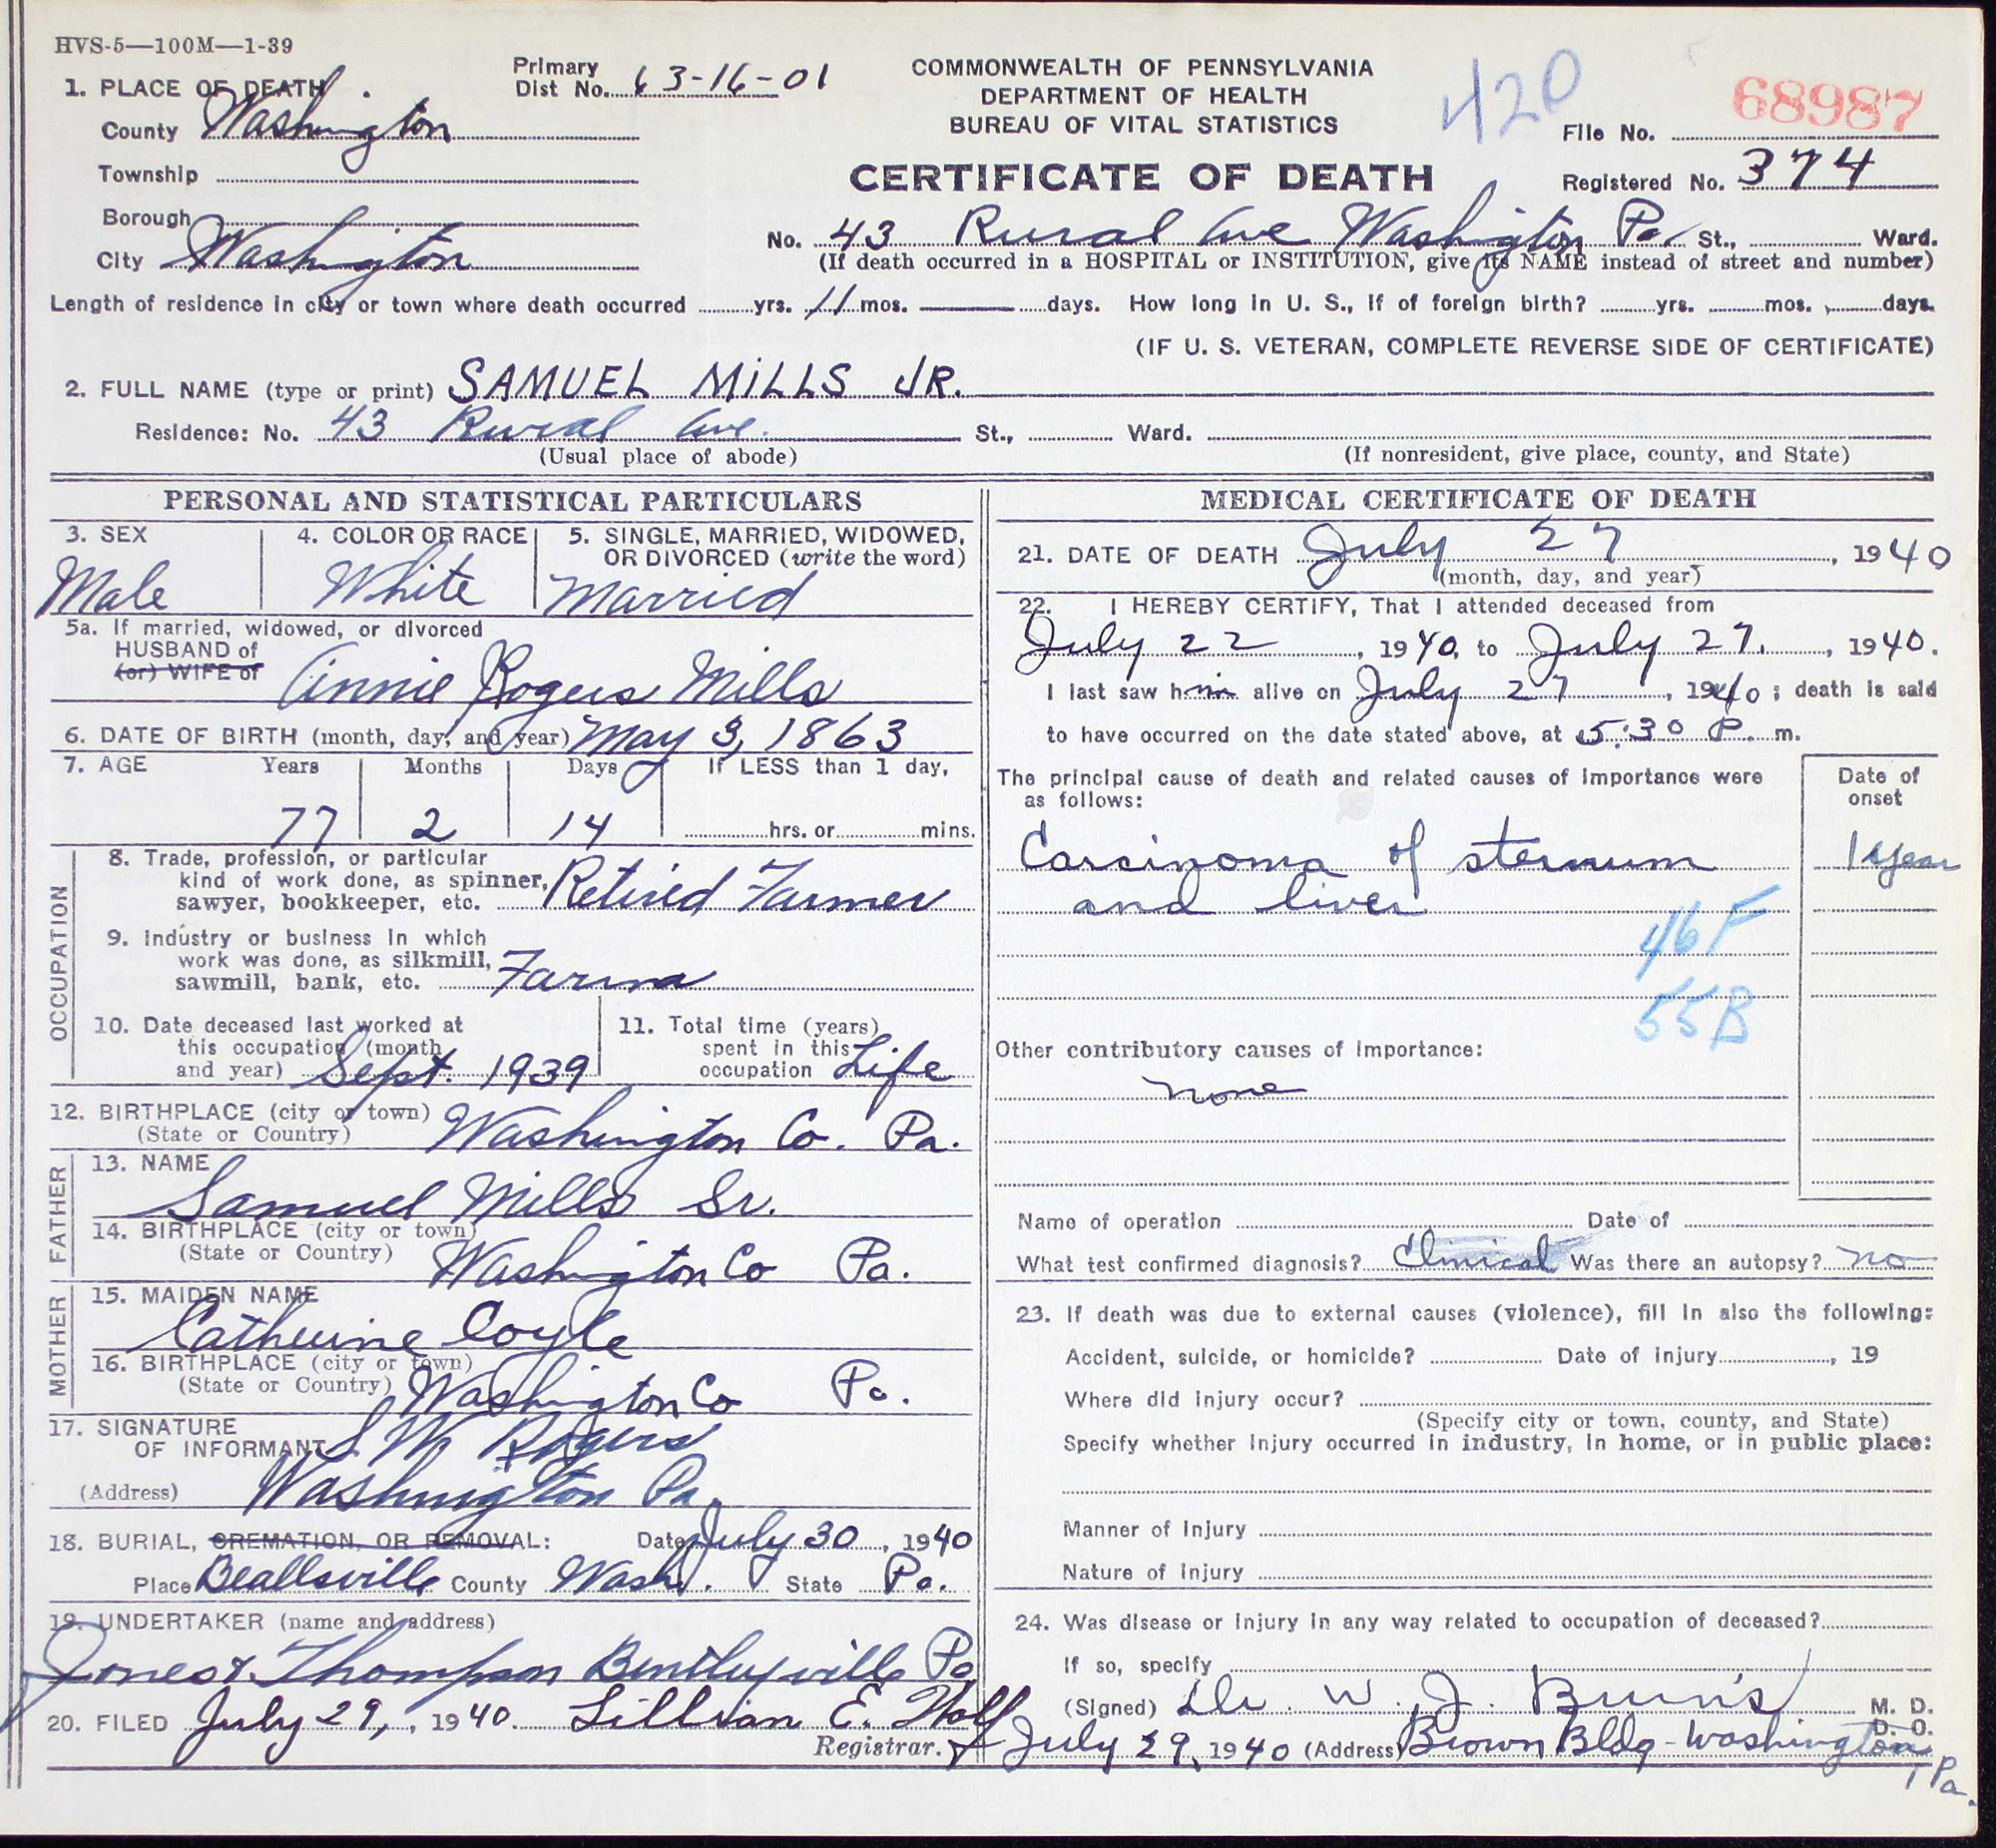 HVS-5—100M—1-39
1. PLACE OF DEATH
County Washington
Township
Borough
City Washington
Primary Dist No. 63-16-01
COMMONWEALTH OF PENNSYLVANIA
DEPARTMENT OF HEALTH
BUREAU OF VITAL STATISTICS
CERTIFICATE OF DEATH
420
68987
File No.
Registered No. 374
No. 43 Rural Ave Washington Pa. St., Ward.
(If death occurred in a HOSPITAL or INSTITUTION, give its NAME instead of street and number)
Length of residence in city or town where death occurred yrs. 11 mos. days. How long in U. S., if of foreign birth? yrs. mos. days.
(IF U. S. VETERAN, COMPLETE REVERSE SIDE OF CERTIFICATE)
2. FULL NAME (type or print) SAMUEL MILLS JR.
Residence: No. 43 Rural Ave. St., Ward.
(Usual place of abode) (If nonresident, give place, county, and State)
PERSONAL AND STATISTICAL PARTICULARS
3. SEX 4. COLOR OR RACE 5. SINGLE, MARRIED, WIDOWED,
OR DIVORCED (write the word)
Male White Married
5a. If married, widowed, or divorced
HUSBAND of
(or) WIFE of Annie Rogers Mills
6. DATE OF BIRTH (month, day, and year) May 3, 1863
7. AGE Years Months Days If LESS than 1 day,
77 2 14 hrs. or mins.
OCCUPATION
8. Trade, profession, or particular
kind of work done, as spinner,
sawyer, bookkeeper, etc. Retired Farmer
9. Industry or business in which
work was done, as silkmill,
sawmill, bank, etc. Farm
10. Date deceased last worked at
this occupation (month
and year) Sept. 1939
11. Total time (years)
spent in this
occupation Life
12. BIRTHPLACE (city or town)
(State or Country) Washington Co. Pa.
FATHER
13. NAME
Samuel Mills Sr.
14. BIRTHPLACE (city or town)
(State or Country) Washington Co Pa.
MOTHER
15. MAIDEN NAME
Catherine Coyle
16. BIRTHPLACE (city or town)
(State or Country) Washington Co Pa.
17. SIGNATURE
OF INFORMANT S. M. Rogers
(Address) Washington Pa.
18. BURIAL, CREMATION, OR REMOVAL: Date July 30, 1940
Place Beallsville County Wash. State Pa.
19. UNDERTAKER (name and address)
Jones & Thompson Bentleyville Pa
20. FILED July 29, 1940. Lillian E. Wolf
Registrar.
MEDICAL CERTIFICATE OF DEATH
21. DATE OF DEATH July 27, 1940
(month, day, and year)
22. I HEREBY CERTIFY, That I attended deceased from
July 22, 1940, to July 27, 1940.
I last saw him alive on July 27, 1940; death is said
to have occurred on the date stated above, at 5:30 P. m.
The principal cause of death and related causes of importance were
as follows:
Date of
onset
Carcinoma of sternum 1 year
and liver
46F
55B
Other contributory causes of importance:
none
Name of operation Date of
What test confirmed diagnosis? Clinical Was there an autopsy? no
23. If death was due to external causes (violence), fill in also the following:
Accident, suicide, or homicide? Date of injury, 19
Where did injury occur?
(Specify city or town, county, and State)
Specify whether injury occurred in industry, in home, or in public place:
Manner of injury
Nature of injury
24. Was disease or injury in any way related to occupation of deceased?
If so, specify
(Signed) Dr. W. J. Burns M. D.
D. O.
July 29, 1940 (Address) Brown Bldg - Washington
Pa.